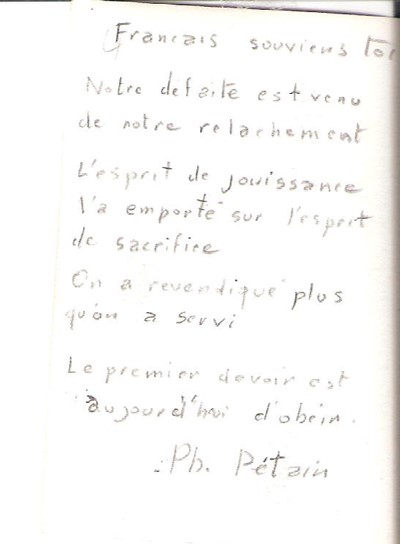 Francais souviens toi
Notre defaite est venu
de notre relachement
L'esprit de jouissance
l'a emporté sur l'esprit
de sacrifice
On a revendiqué plus
qu'on a servi
Le premier devoir est
aujourd'hui d'obéir.
Ph. Pétain